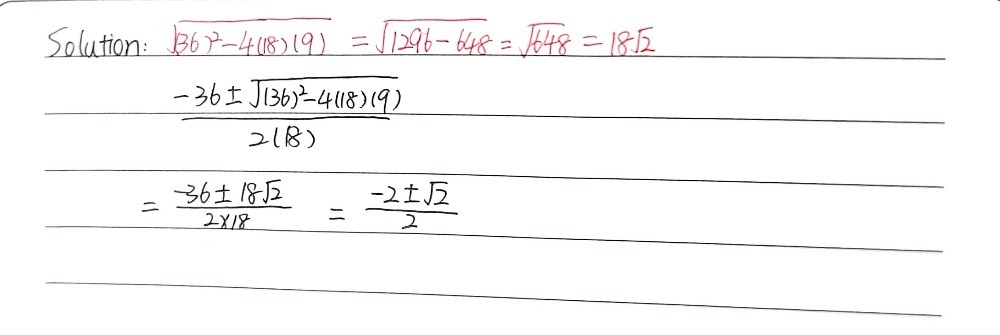 Solution: √(36)²-4(18)(9) = √1296-648 = √648 = 18√2
-36±√(36)²-4(18)(9)
2(18)
= -36±18√2 / 2×18 = -2±√2 / 2